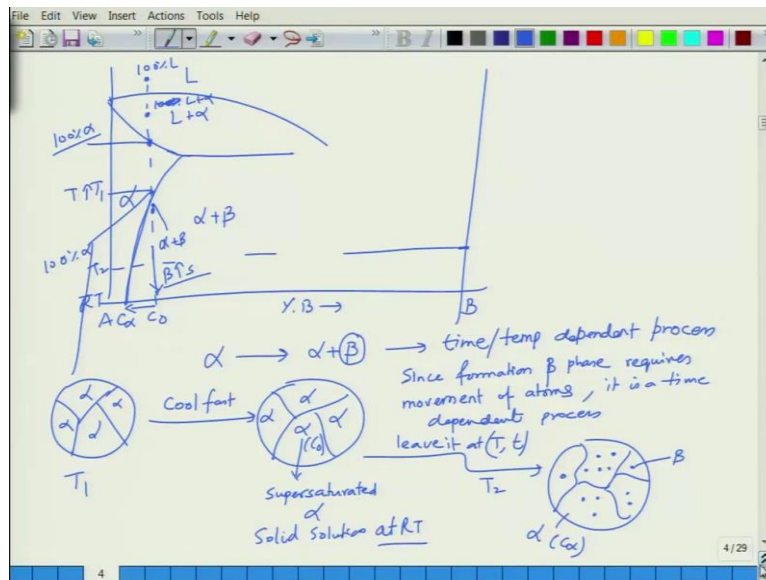 File Edit View Insert Actions Tools Help
100%L
L
L+α
L+α
100%α
T↑T1
α
α+β
α+β
100%α
T2
β↑s
RT
A Cα C0
%B →
B
α → α+β → time/temp dependent process
Since formation β phase requires
movement of atoms, it is a time
dependent process
leave it at (T, t)
α α α α
Cool fast
α α α α
(C0)
T1
T2
β
Supersaturated
α
Solid Solution at RT
α (Cα)
4/29
4